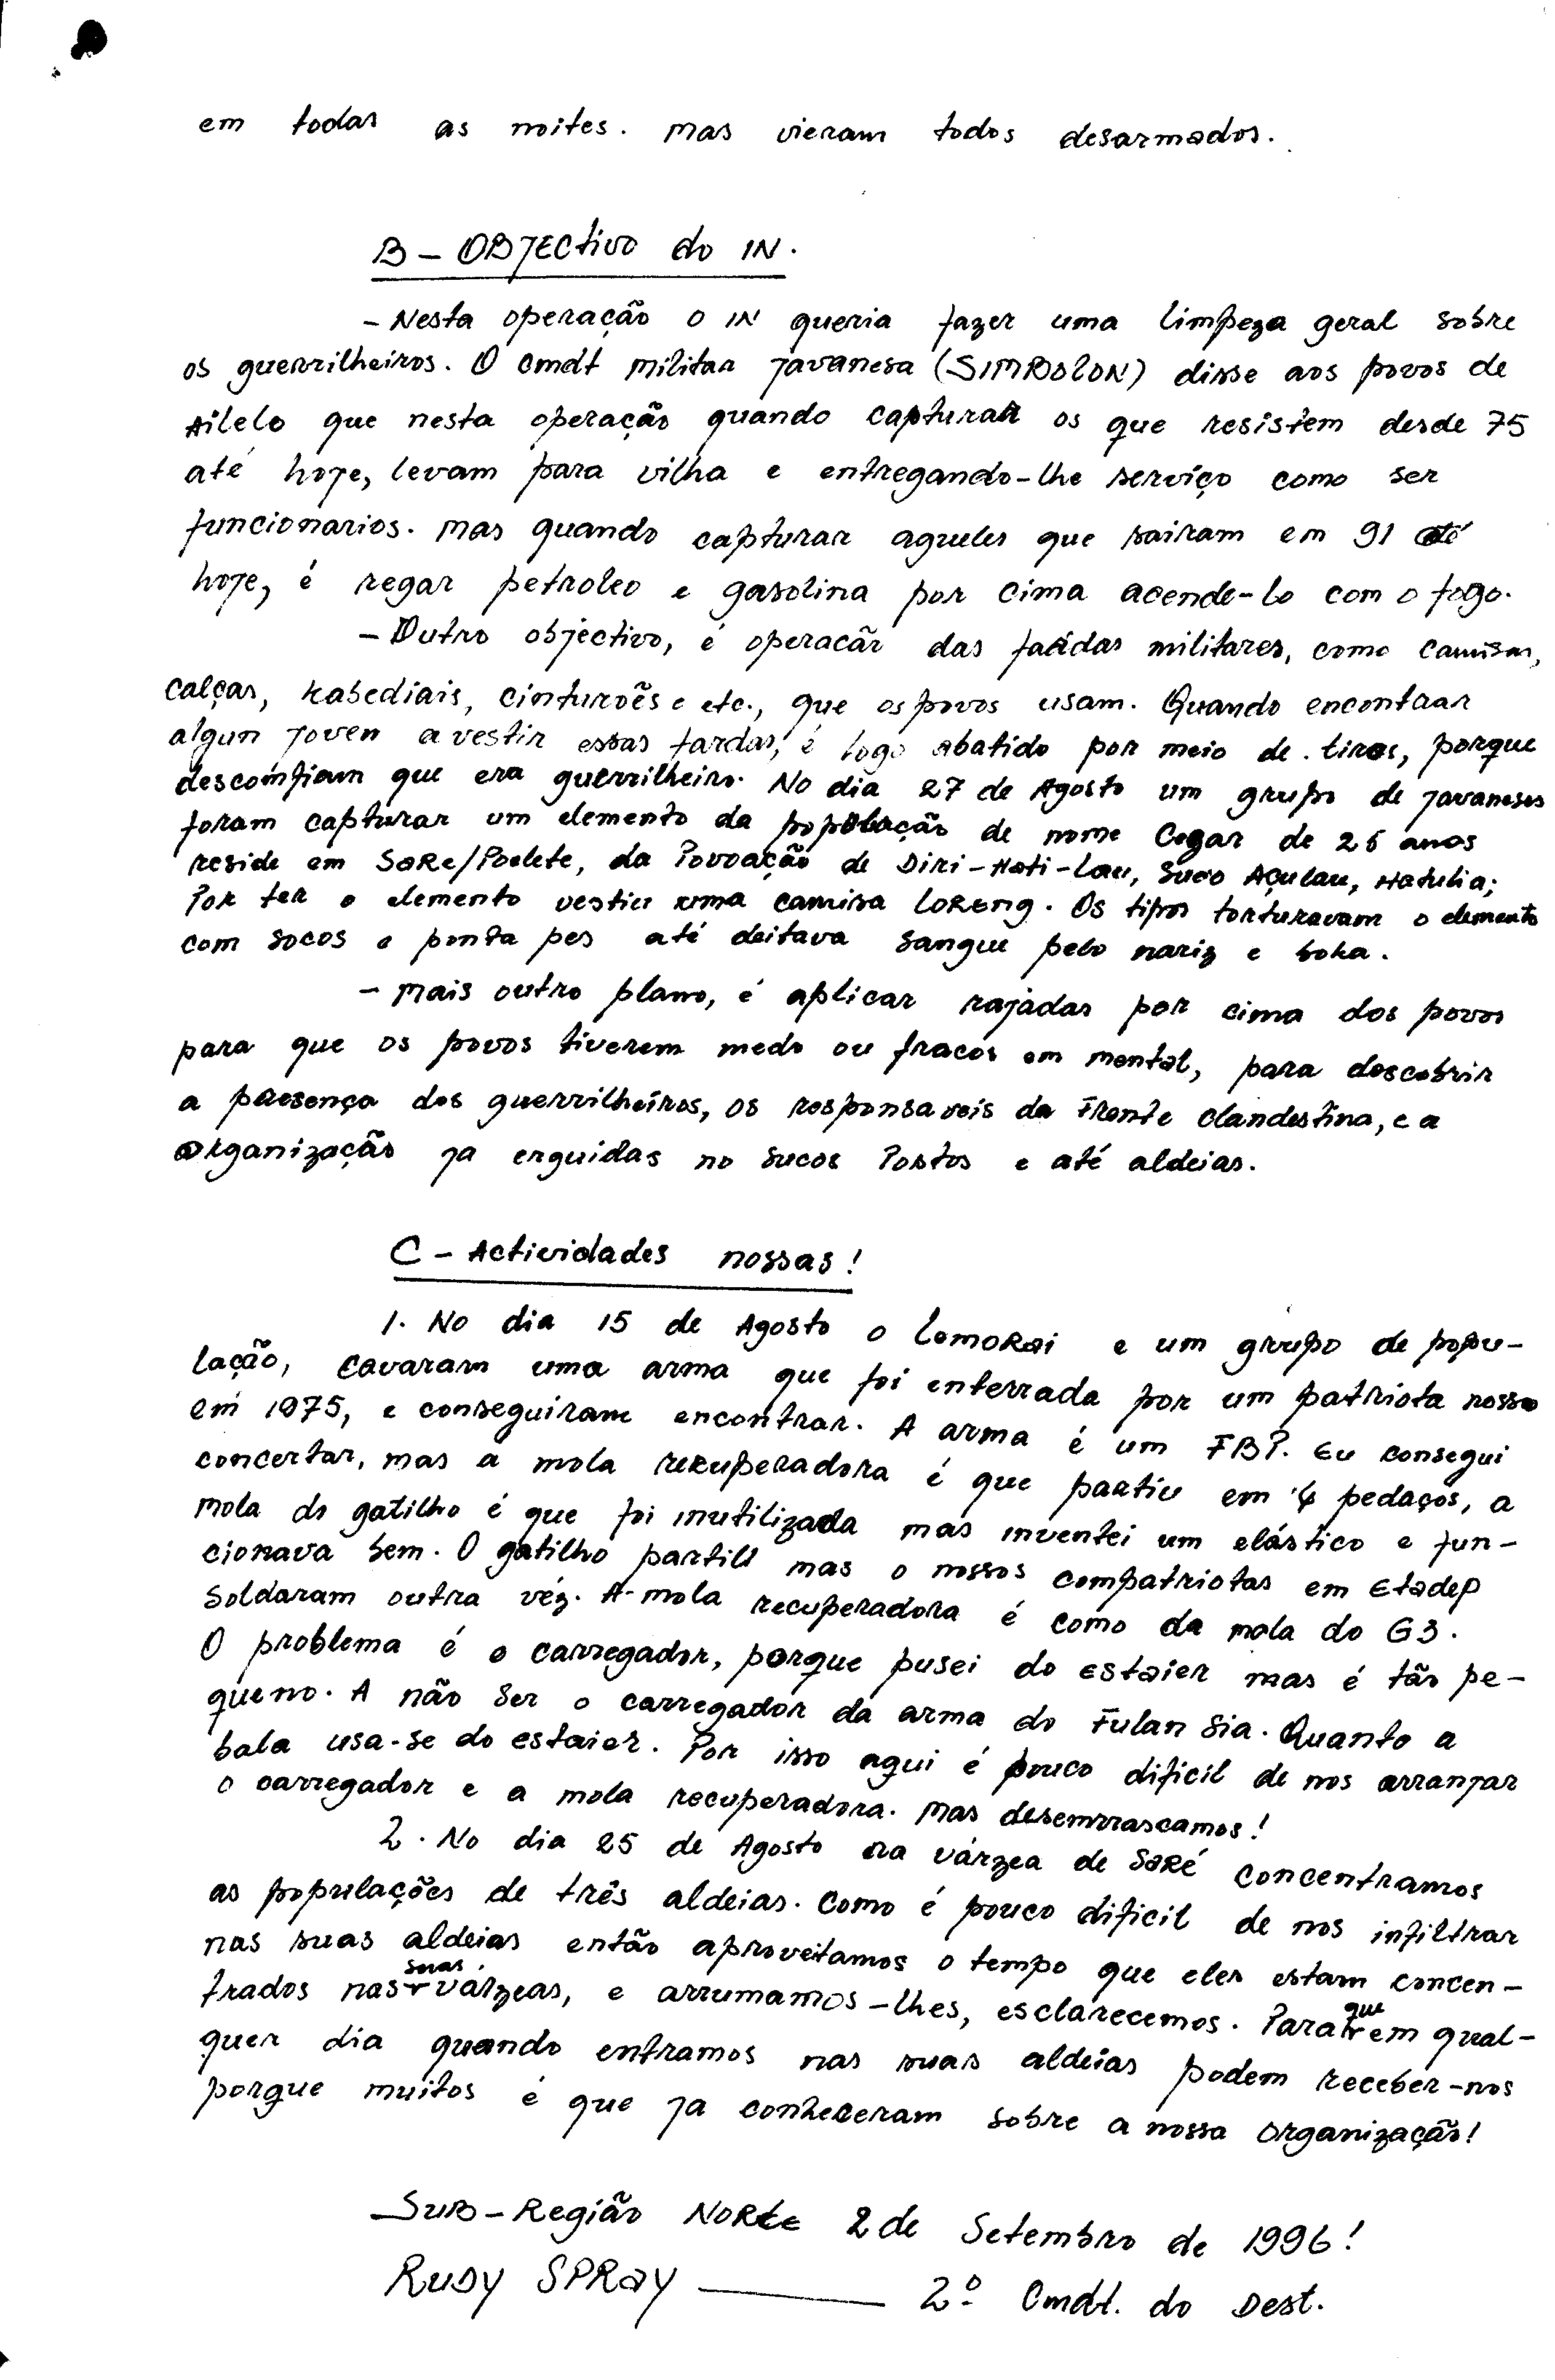 em todas as noites. mas vieram todos desarmados.
B - OBJECtivo do IN.
- Nesta operação o IN queria fazer uma limpeza geral sobre
os guerrilheiros. O cmdt militar javanesa (SIMBOLON) disse aos povos de
Ailelo que nesta operação quando capturar os que resistem desde 75
até hoje, levam para vilha e entregando-lhe serviço como ser
funcionarios. mas quando capturar aqueles que sairam em 91 até
hoje, é regar petroleo e gasolina por cima acende-lo com o fogo.
- Outro objectivo, é operacãr das fardas militares, como camisas,
calças, kabediais, cinturões e etc., que os povos usam. Quando encontrar
algun joven a vestir essas fardas, é logo abatido por meio de tiros, porque
descomfiam que era guerrilheiro. No dia 27 de Agosto um grupo de javaneses
foram capturar um elemento da população de nome Cegar de 26 anos
reside em SaRe/Poelete, da Povoação de Diri-Hati-Lau, Suco Açulau, Hatulia;
Por ter o elemento vestiu uma camisa LoReng. Os tipos torturavam o elemento
com socos e ponta pes até deitava sangue pelo nariz e boka.
- mais outro plano, é aplicar rajadas por cima dos povos
para que os povos tiverem medo ou fracos em mental, para descobrir
a presença dos guerrilheiros, os responsaveis da Frente clandestina, e a
organização ja erguidas no sucos Postos e até aldeias.
C - Actividades nossas!
1. No dia 15 de Agosto o LemoRai e um grupo de popu-
lação, cavaram uma arma que foi enterrada por um patriota nosso
em 1975, e conseguiram encontrar. A arma é um FBP. Eu consegui
concertar, mas a mola rekuperadora é que partiu em 4 pedaços, a
mola do gatilho é que foi inutilizada mas inventei um elástico e fun-
cionava bem. O gatilho partiu mas o nossos compatriotas em Etadep
Soldaram outra véz. A mola recuperadora é como da mola do G3.
O problema é o carregador, porque pusei do estaier mas é tão pe-
queno. A não ser o carregador da arma do Fulan Sia. Quanto a
bala usa-se do estaier. Por isso aqui é pouco dificil de nos arranjar
o carregador e a mola recuperadora. mas desemrrascamos!
2. No dia 25 de Agosto na várzea de SaRé concentramos
as populações de três aldeias. Como é pouco dificil de nos infiltrar
nas suas aldeias então aproveitamos o tempo que eles estam concen-
trados nas suas várzeas, e arrumamos-lhes, esclarecemos. Para que em qual-
quer dia quando entramos nas suas aldeias podem receber-nos
porque muitos é que ja conheceram sobre a nossa organização!
SUB-Região NORte 2 de Setembro de 1996!
RUDY SPRay ——— 2º Cmdt. do Dest.